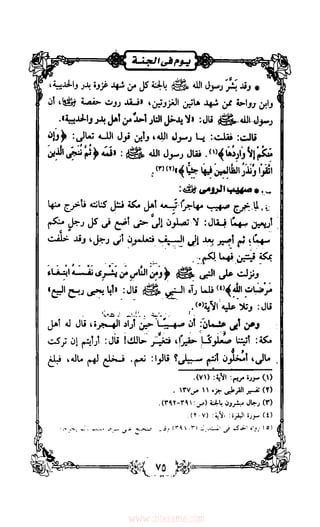 يوم فى الجنة
* وقد بَشَّر رسول الله ﷺ بالجنة كل من شهد غزوة بدر والحديبية،
وابن رواحة ممن شهد هاتين الغزوتين، فقد روت حفصة، أن
رسول الله ﷺ قال: «لا يدخل النار أحدٌ من أهل بدر والحديبية».
قالت: فقلت: يا رسول الله، وأين قول الله تعالى: ﴿وَإِن
مِّنكُمْ إِلاَّ وَارِدُهَا﴾(١). فقال رسول الله ﷺ: «فَمَه ﴿ثُمَّ نُنَجِّي الَّذِينَ
اتَّقَوا وَّنَذَرُ الظَّالِمِينَ فِيهَا جِثِيًّا﴾»(٢)(٣).
*.. صهيب الرومى ﷺ:
لما خرج صهيب مهاجرًا تبعه أهل مكة فنثل كنانته فأخرج منها
أربعين سهمًا فقال: لا تصلون إلىَّ حتى أضع فى كل رجل منكم
سهمًا، ثم أصير بعد إلى السيف فتعلمون أنى رجل، وقد خلفت
بمكة قينتين فهما لكم.
ونزلت على النبى ﷺ ﴿وَمِنَ النَّاسِ مَن يَشْرِي نَفْسَهُ ابْتِغَاءَ
مَرْضَاتِ اللَّهِ﴾(٤) فلما رآه النبى ﷺ قال: «أبا يحيى ربح البيع»
قال: وتلا عليه الآية(٥).
وعن أبى عثمان: أن صهيبًا حين أراد الهجرة، قال له أهل
مكة: أتيتنا صعلوكًا حقيرًا، فتغير حالك! قال: أرأيتم إن تركت
مالى، أمخلون أنتم سبيلى؟ قالوا: نعم. فخلع لهم ماله، فبلغ
(١) سورة مريم: الآية: (٧١).
(٢) تفسير القرطبى جزء ١١ ص ١٣٧.
(٣) رجال مبشرون بالجنة (ص: ٣٩١-٣٩٢)
(٤) سورة البقرة: الآية: (٢٠٧)
(٥) رواه الحاكم فى المستدرك
٧٥
www.ibtesama.com